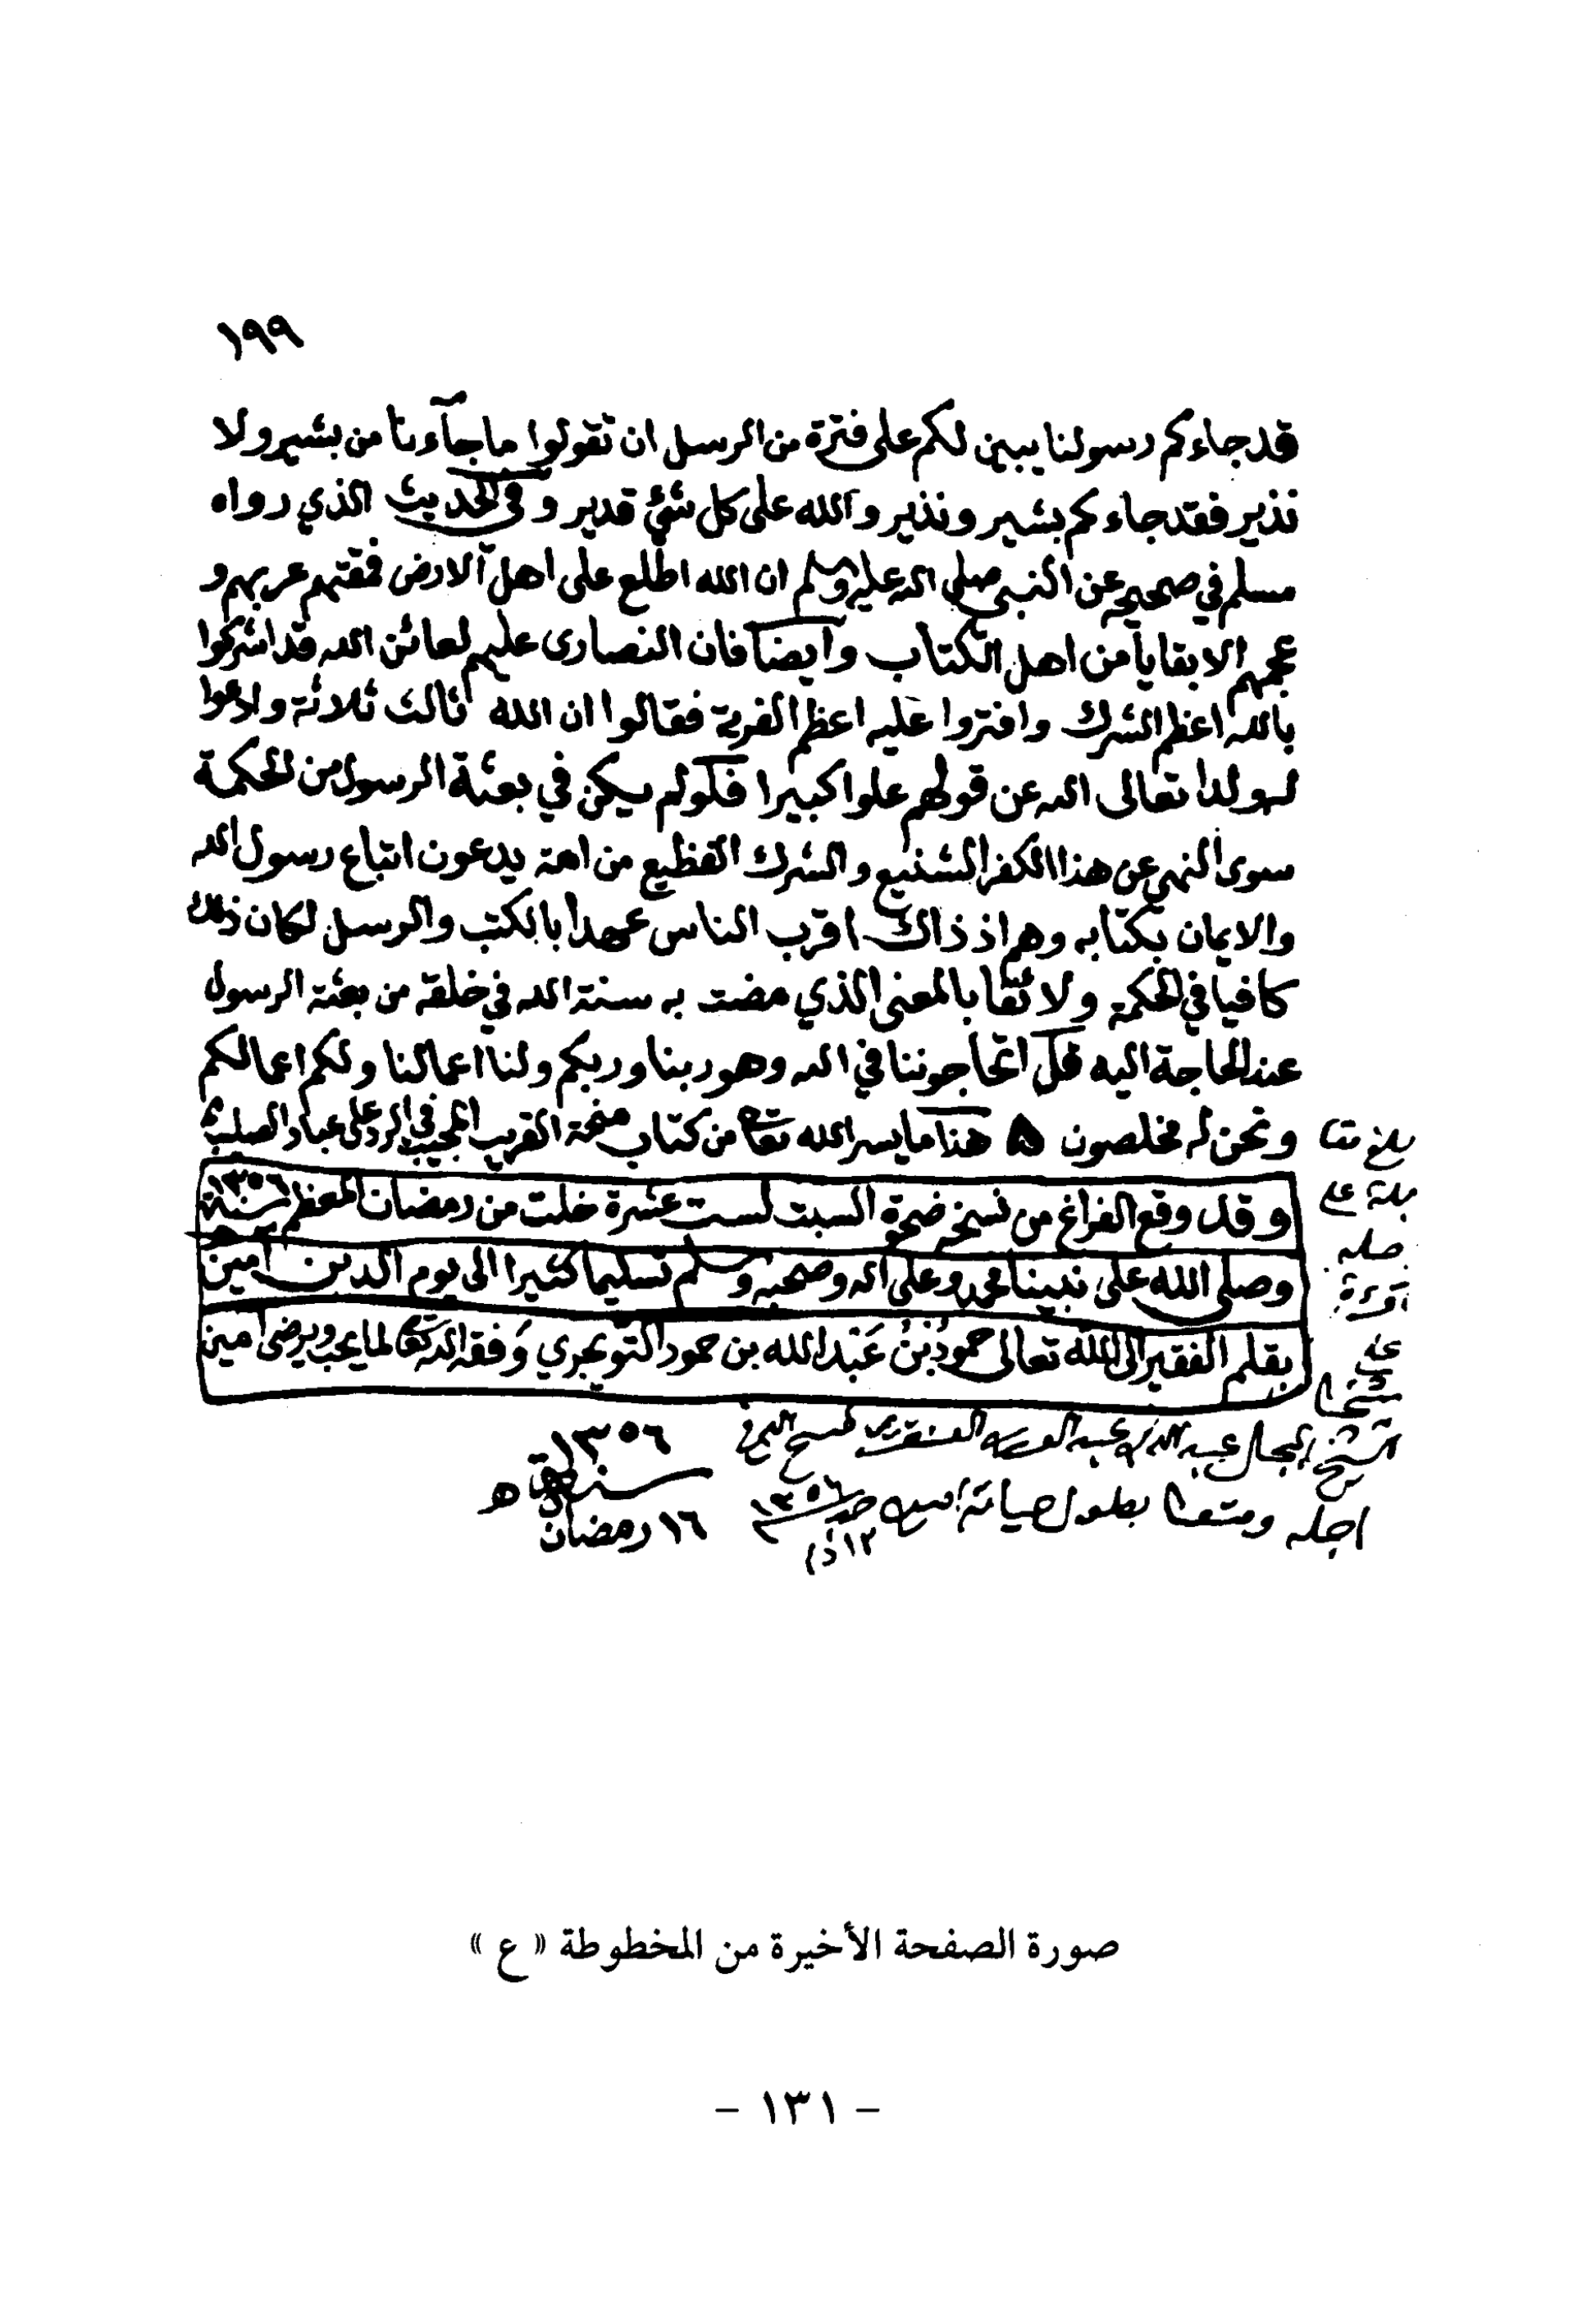 ١٩٩
قد جاءكم رسولنا يبين لكم على فترة من الرسل ان تقولوا ما جآءنا من بشير ولا
نذير فقد جاءكم بشير ونذير والله على كل شئ قدير وفي الحديث الذي رواه
مسلم في صحيحه عن النبي صلى الله عليه وسلم ان الله اطلع على اهل الارض فمقتهم عربهم و
عجمهم الا بقايا من اهل الكتاب وايضا فان النصارى عليهم لعائن الله قد اشركوا
بالله اعظم الشرك وافتروا عليه اعظم الفرية فقالوا ان الله ثالث ثلاثة وادعوا
له ولدا تعالى الله عن قولهم علوا كبيرا فلو لم يكن في بعثة الرسول من الحكمة
سوى النهي عن هذا الكفر الشنيع والشرك الفظيع من امة يدعون اتباع رسول الله
والايمان بكتابه وهم اذ ذاك اقرب الناس عهدا بالكتب والرسل لكان ذلك
كافيا في الحكمة ولائقا بالمعنى الذي مضت به سنة الله في خلقه من بعثة الرسول
عند الحاجة اليه قل اتحاجوننا في الله وهو ربنا وربكم ولنا اعمالنا ولكم اعمالكم
ونحن له مخلصون ه هنا ما يسر الله تعا من كتاب منحة القريب المجيب في الرد على عباد الصليب
وقد وقع الفراغ من نسخه ضحوة السبت لست عشرة خلت من رمضان المعظم سنة ١٣٥٦ هـ
وصلى الله على نبينا محمد وعلى اله وصحبه وسلم تسليما كثيرا الى يوم الدين امين
بقلم الفقير الى الله تعالى حمود بن عبد الله بن حمود التويجري وفقه الله تعا لما يحب ويرضى امين
بلغ مقا
بلة على
اصله
قراءة
على
شيخنا
الشيخ عبد الله بن عبد العزيز العنقري فسح الله في
اجله ومتعنا بطول حياته امين ١٣٥٦
١٢ ذ ا
١٣٥٦
سنة هـ
١٦ رمضان
صورة الصفحة الأخيرة من المخطوطة « ع »
- ١٣١ -